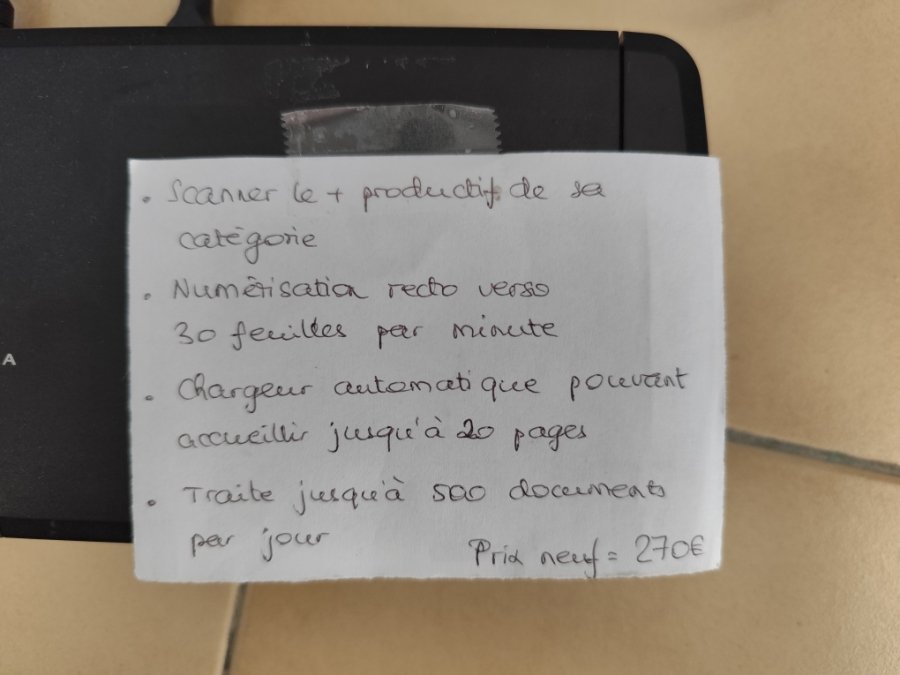 • Scanner le + productif de sa
catégorie
• Numérisation recto verso
30 feuilles par minute
• Chargeur automatique pouvant
accueillir jusqu'à 20 pages
• Traite jusqu'à 500 documents
per jour
Prix neuf = 270€
A